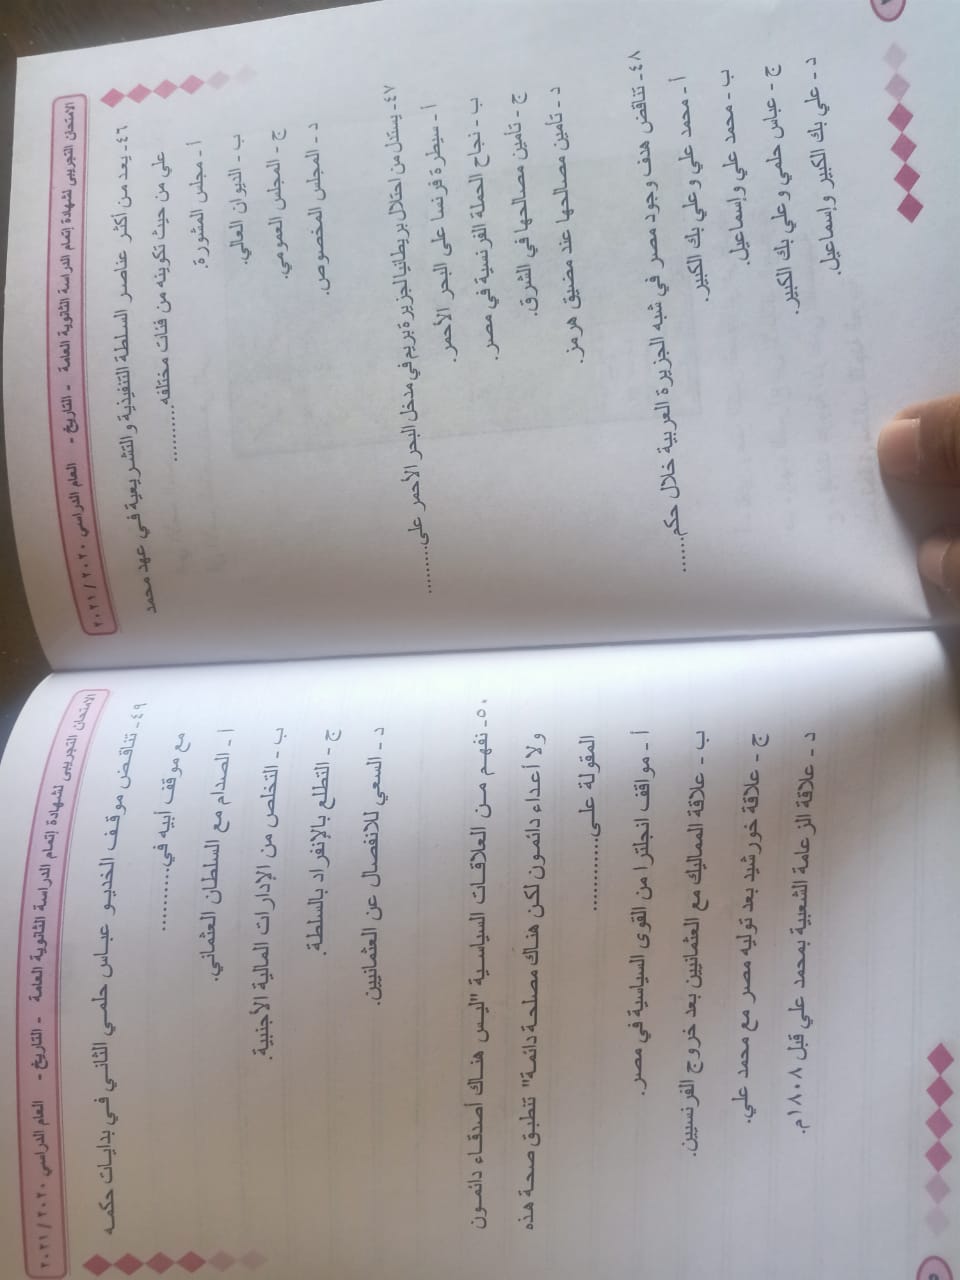 الامتحان التجريبى لشهادة إتمام الدراسة الثانوية العامة - التاريخ - العام الدراسي ٢٠٢٠ / ٢٠٢١
٤٦- يعد من أكثر عناصر السلطة التنفيذية والتشريعية في عهد محمد
علي من حيث تكوينه من فئات مختلفه..........
أ - مجلس المشورة.
ب - الديوان العالي.
ج - المجلس العمومي.
د - المجلس المخصوص.
٤٧- يستدل من احتلال بريطانيا لجزيرة بريم في مدخل البحر الأحمر على.........
أ - سيطرة فرنسا على البحر الأحمر.
ب - نجاح الحملة الفرنسية في مصر.
ج - تأمين مصالحها في الشرق.
د - تأمين مصالحها عند مضيق هرمز.
٤٨- تناقض هدف وجود مصر في شبه الجزيرة العربية خلال حكم......
أ - محمد علي وعلي بك الكبير.
ب - محمد علي وإسماعيل.
ج - عباس حلمي وعلي بك الكبير.
د - علي بك الكبير وإسماعيل.
الامتحان التجريبى لشهادة إتمام الدراسة الثانوية العامة - التاريخ - العام الدراسي ٢٠٢٠ / ٢٠٢١
٤٩- تناقض موقف الخديو عباس حلمي الثاني في بدايات حكمه
مع موقف أبيه في..........
أ - الصدام مع السلطان العثماني.
ب - التخلص من الإدارات المالية الأجنبية.
ج - التطلع بالإنفراد بالسلطة.
د - السعي للانفصال عن العثمانيين.
٥٠- نفهم من العلاقات السياسية "ليس هناك أصدقاء دائمون
ولا أعداء دائمون لكن هناك مصلحة دائمة" تنطبق صحة هذه
المقولة على............
أ - مواقف انجلترا من القوى السياسية في مصر.
ب - علاقة المماليك مع العثمانيين بعد خروج الفرنسيين.
ج - علاقة خورشيد بعد توليه مصر مع محمد علي.
د - علاقة الزعامة الشعبية بمحمد علي قبل ١٨٠٨م.